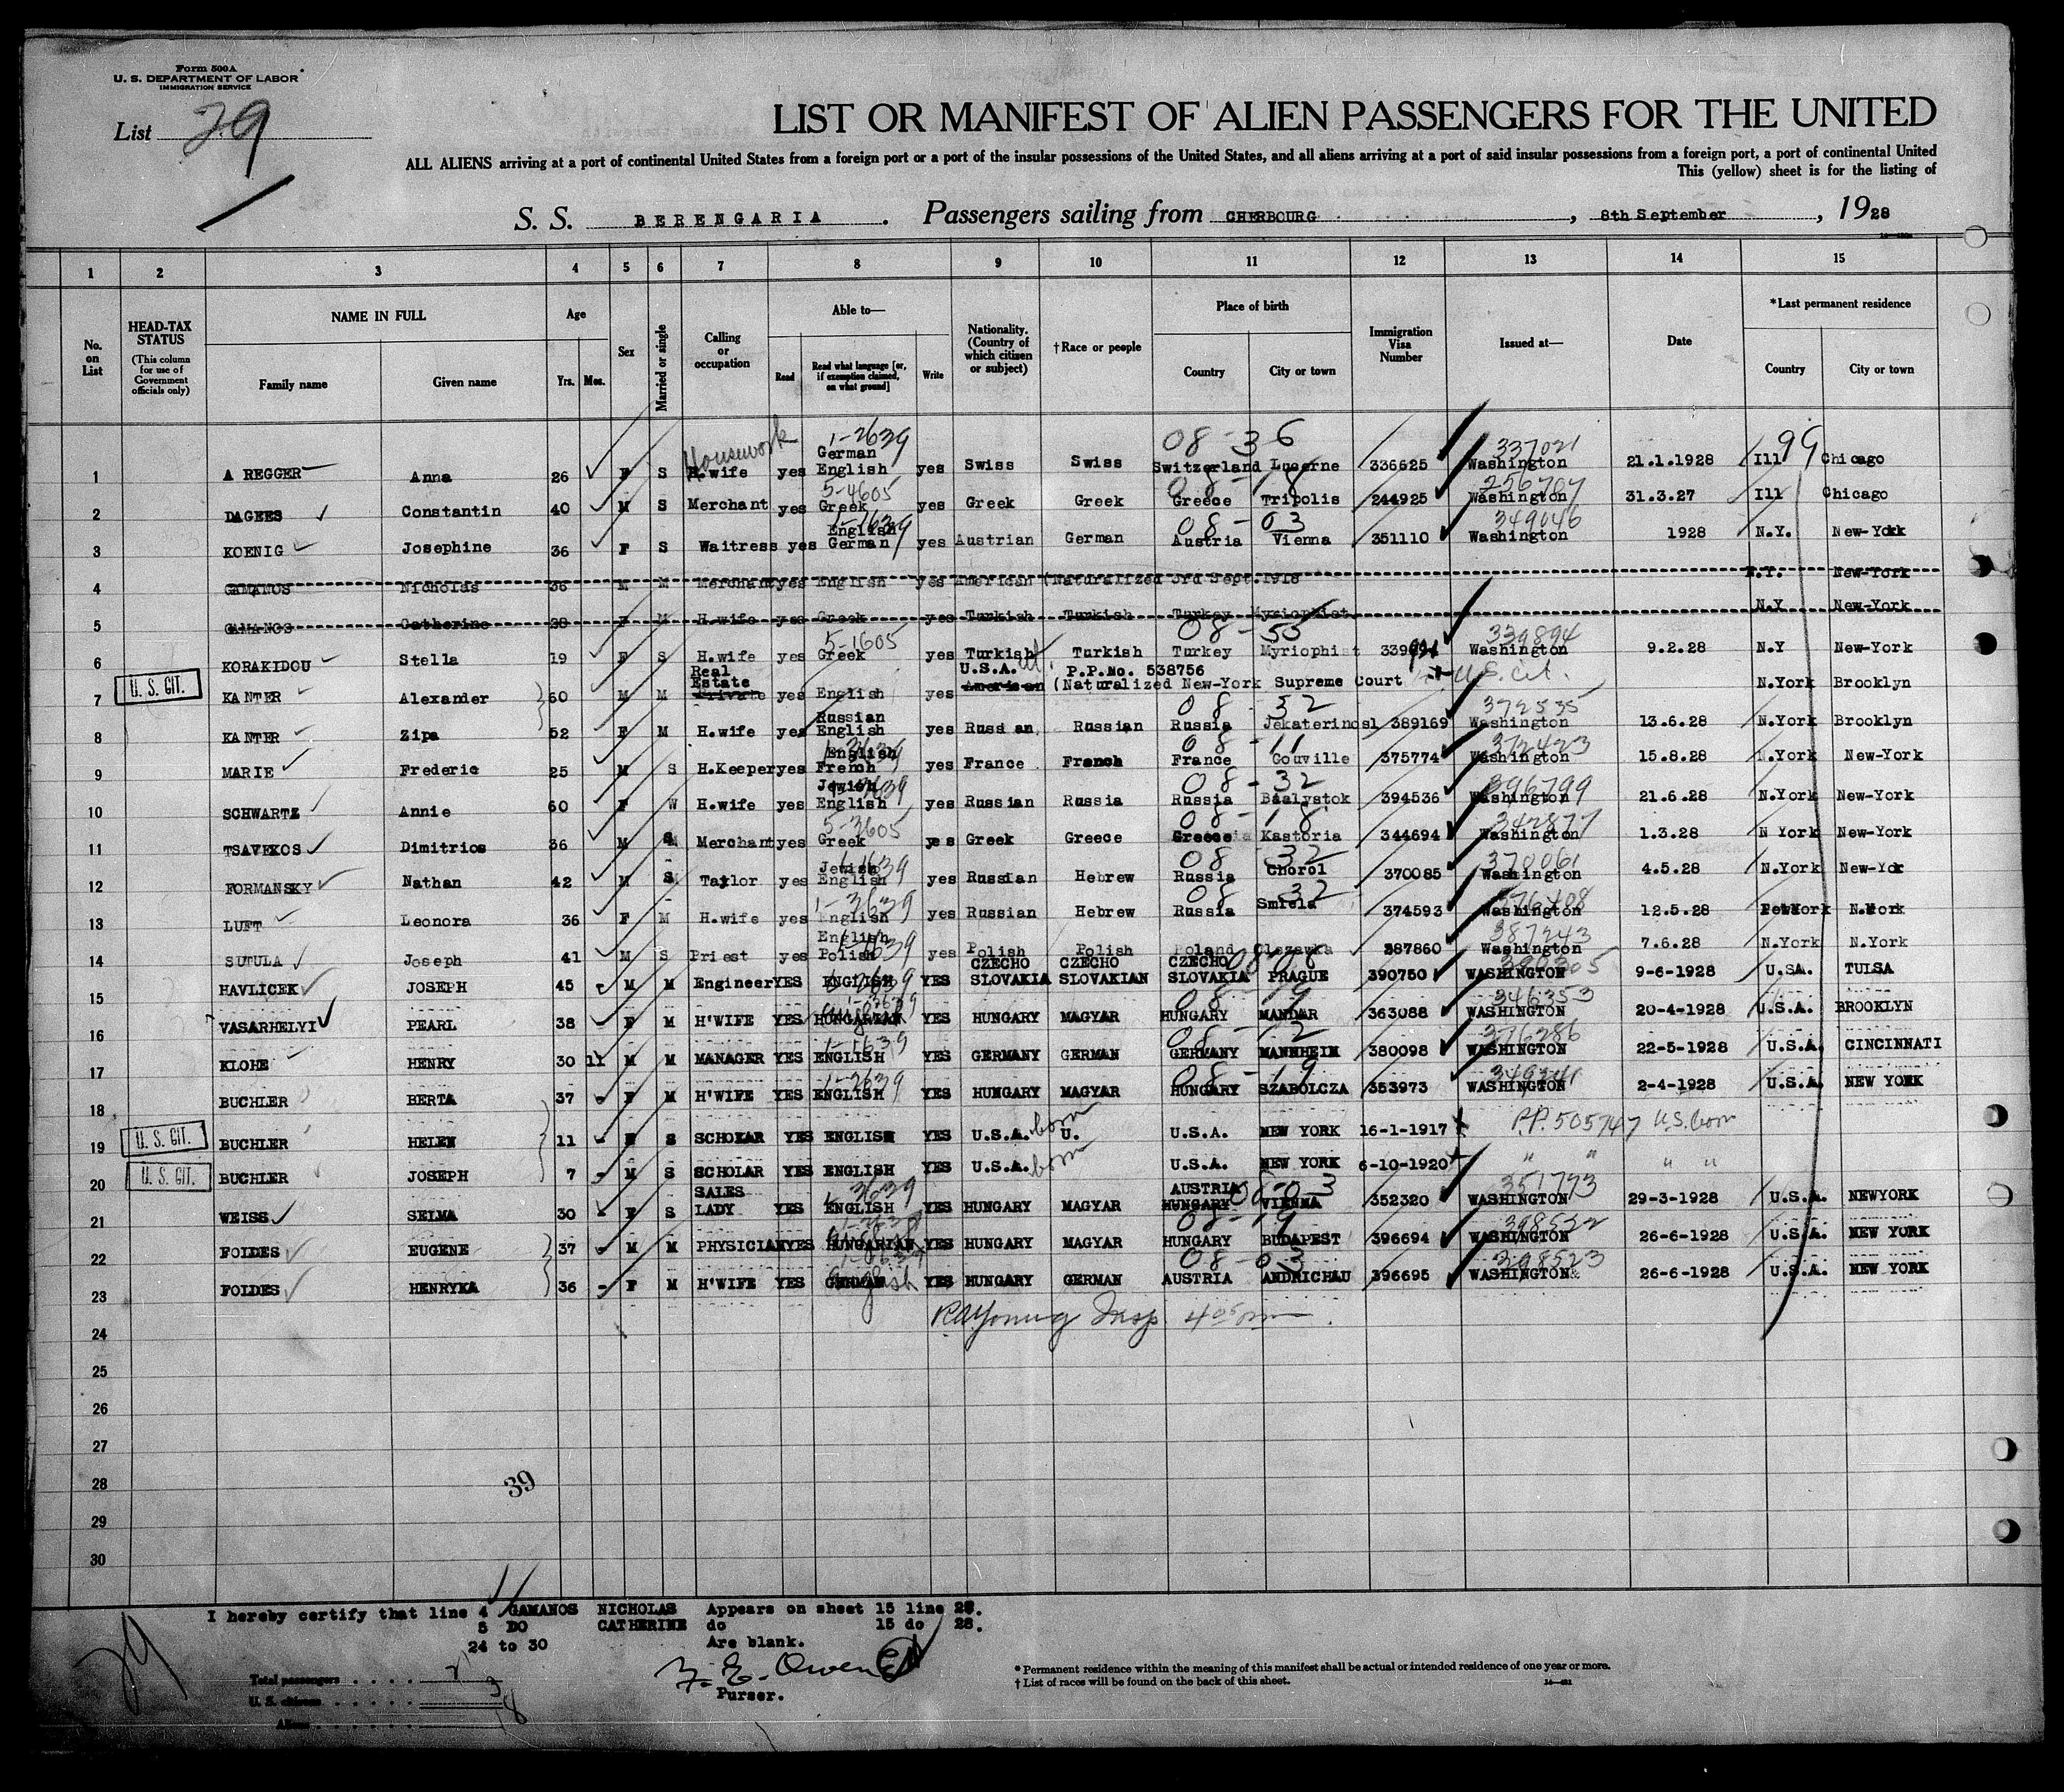 Form 500A
U. S. DEPARTMENT OF LABOR
IMMIGRATION SERVICE
List 29
LIST OR MANIFEST OF ALIEN PASSENGERS FOR THE UNITED
ALL ALIENS arriving at a port of continental United States from a foreign port or a port of the insular possessions of the United States, and all aliens arriving at a port of said insular possessions from a foreign port, a port of continental United
This (yellow) sheet is for the listing of
S. S. BERENGARIA. Passengers sailing from CHERBOURG, 8th September, 1928
1 2 3 4 5 6 7 8 9 10 11 12 13 14 15
No. on List
HEAD-TAX STATUS (This column for use of Government officials only)
NAME IN FULL
Family name Given name
Age
Yrs. Mos.
Sex
Married or single
Calling or occupation
Able to—
Read Read what language [or, if exemption claimed, on what ground] Write
Nationality. (Country of which citizen or subject)
†Race or people
Place of birth
Country City or town
Immigration Visa Number
Issued at—
Date
*Last permanent residence
Country City or town
Housework 1-2639 08-36 337021 99
1 A REGGER Anna 26 F S H.wife yes German English yes Swiss Swiss Switzerland Lucerne 336625 Washington 21.1.1928 Ill Chicago
5-4605 08-18 256707
2 DAGRES Constantin 40 M S Merchant yes Greek yes Greek Greek Greece Tripolis 244925 Washington 31.3.27 Ill Chicago
1-1639 08-03 349046
3 KOENIG Josephine 36 F S Waitress yes English German yes Austrian German Austria Vienna 351110 Washington 1928 N.Y. New-York
4 GAMANOS Nicholas 36 M M Merchant yes English yes American (Naturalized 3rd Sept.1918 N.Y. New-York
5 GAMANOS Catherine 28 F M H.wife yes Greek yes Turkish Turkish Turkey Myriophist N.Y New-York
5-1605 08-55 339894
6 KORAKIDOU Stella 19 F S H.wife yes Greek yes Turkish Turkish Turkey Myriophist Washington 9.2.28 N.Y New-York
U. S. CIT.
7 KANTER Alexander 60 M M Real Estate Private yes English yes U.S.A. American P.P.No. 538756 (Naturalized New-York Supreme Court U.S. cit. N.York Brooklyn
08-32 372535
8 KANTER Zipa 52 F M H.wife yes Russian English yes Russian Russian Russia Jekaterinosl 389169 Washington 13.6.28 N.York Brooklyn
08-11 372423
9 MARIE Frederic 25 M S H.Keeper yes English French yes France French France Gouville 375774 Washington 15.8.28 N.York New-York
08-32 396799
10 SCHWARTZ Annie 60 F W H.wife yes Jewish English yes Russian Russia Russia Bialystok 394536 Washington 21.6.28 N.York New-York
5-3605 08-18 342877
11 TSAVEKOS Dimitrios 36 M S Merchant yes Greek yes Greek Greece Greece Kastoria 344694 Washington 1.3.28 N York New-York
1-1639 08 32 370061
12 FORMANSKY Nathan 42 M S Taylor yes Jewish English yes Russian Hebrew Russia Chorol 370085 Washington 4.5.28 N.York New-Yor
1-2639 08 32 376408
13 LUFT Leonora 36 F M H.wife yes English yes Russian Hebrew Russia Smiela 374593 Washington 12.5.28 N.York
387243
14 SUTULA Joseph 41 M S Priest yes English Polish yes Polish Polish Poland 387860 Washington 7.6.28 N.York N.York
15 HAVLICEK JOSEPH 45 M M Engineer YES ENGLISH YES CZECHO SLOVAKIA CZECHO SLOVAKIAN CZECHO SLOVAKIA PRAGUE 390750 WASHINGTON 9-6-1928 U.SA. TULSA
08-19 346353
16 VASARHELYI PEARL 38 F M H'WIFE YES HUNGARIAN YES HUNGARY MAGYAR HUNGARY MANDAR 363088 WASHINGTON 20-4-1928 U.S.A. BROOKLYN
1-1639 08-12 376286
17 KLOHE HENRY 30 11 M M MANAGER YES ENGLISH YES GERMANY GERMAN GERMANY MANNHEIM 380098 WASHINGTON 22-5-1928 U.S.A. CINCINNATI
1-2639 08-19 349341
18 BUCHLER BERTA 37 F M H'WIFE YES ENGLISH YES HUNGARY MAGYAR HUNGARY SZABOLCZA 353973 WASHINGTON 2-4-1928 U.S.A. NEW YORK
U. S. CIT.
19 BUCHLER HELEN 11 F S SCHOLAR YES ENGLISH YES U.S.A. born U. U.S.A. NEW YORK 16-1-1917 P.P. 505747 U.S. born
U. S. CIT.
20 BUCHLER JOSEPH 7 M S SCHOLAR YES ENGLISH YES U.S.A. born U.S.A. NEW YORK 6-10-1920 " " " "
1-3639 08-03 351793
21 WEISS SELMA 30 F S SALES LADY YES ENGLISH YES HUNGARY MAGYAR AUSTRIA HUNGARY VIENNA 352320 WASHINGTON 29-3-1928 U.S.A. NEWYORK
08-19 398522
22 FOLDES EUGENE 37 M M PHYSICIAN YES HUNGARIAN YES HUNGARY MAGYAR HUNGARY BUDAPEST 396694 WASHINGTON 26-6-1928 U.S.A. NEW YORK
08-03 398523
23 FOLDES HENRYKA 36 F M H'WIFE YES GERMAN English YES HUNGARY GERMAN AUSTRIA ANDRICHAU 396695 WASHINGTON 26-6-1928 U.S.A. NEW YORK
24
25
26
27
28
29
30
39
I hereby certify that line 4 GAMANOS NICHOLAS Appears on sheet 15 line
5 DO CATHERINE do 15 do 28.
24 to 30 Are blank.
29
Total passengers
U. S. citizens 3
Aliens 18
Purser.
* Permanent residence within the meaning of this manifest shall be actual or intended residence of one year or more.
† List of races will be found on the back of this sheet.